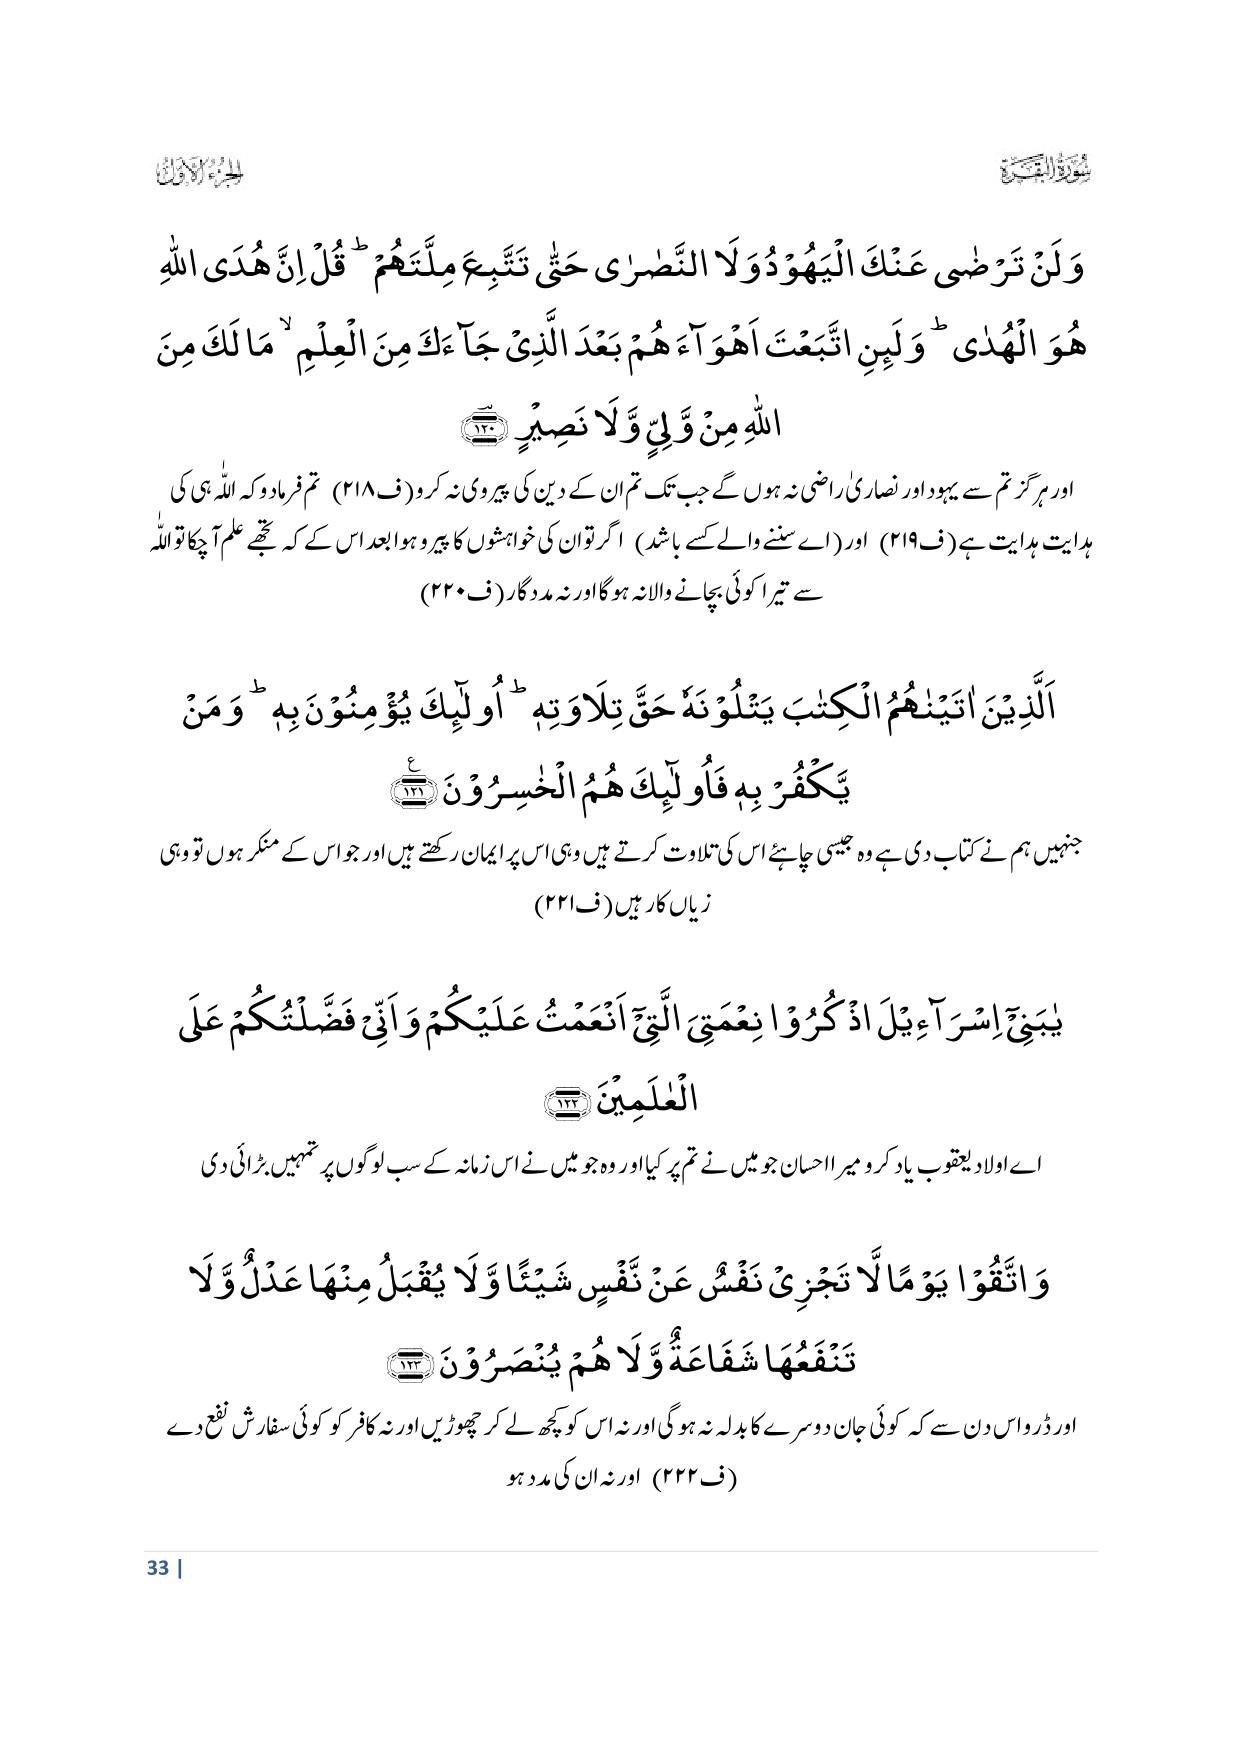 سُوْرَةُ الْبَقَرَةِ
الجزء الاول
وَلَنْ تَرْضٰی عَنْكَ الْیَهُوْدُ وَلَا النَّصٰرٰی حَتّٰی تَتَّبِعَ مِلَّتَهُمْ ؕ قُلْ اِنَّ هُدَی اللّٰهِ
هُوَ الْهُدٰی ؕ وَلَىِٕنِ اتَّبَعْتَ اَهْوَآءَهُمْ بَعْدَ الَّذِیْ جَآءَكَ مِنَ الْعِلْمِ ۙ مَا لَكَ مِنَ
اللّٰهِ مِنْ وَّلِیٍّ وَّلَا نَصِیْرٍ ﴿۱۲۰﴾
اور ہرگز تم سے یہود اور نصاریٰ راضی نہ ہوں گے جب تک تم ان کے دین کی پیروی نہ کرو (ف۲۱۸) تم فرمادو کہ اللّٰہ ہی کی
ہدایت ہدایت ہے (ف۲۱۹) اور (اے سننے والے کسے باشد) اگر تو ان کی خواہشوں کا پیرو ہوا بعد اس کے کہ تجھے علم آچکا تو اللّٰہ
سے تیرا کوئی بچانے والا نہ ہوگا اور نہ مددگار (ف۲۲۰)
اَلَّذِیْنَ اٰتَیْنٰهُمُ الْكِتٰبَ یَتْلُوْنَهٗ حَقَّ تِلَاوَتِهٖ ؕ اُولٰٓىِٕكَ یُؤْمِنُوْنَ بِهٖ ؕ وَمَنْ
یَّكْفُرْ بِهٖ فَاُولٰٓىِٕكَ هُمُ الْخٰسِرُوْنَ ﴿۱۲۱﴾ ع
جنہیں ہم نے کتاب دی ہے وہ جیسی چاہئے اس کی تلاوت کرتے ہیں وہی اس پر ایمان رکھتے ہیں اور جو اس کے منکر ہوں تو وہی
زیاں کار ہیں (ف۲۲۱)
یٰبَنِیْۤ اِسْرَآءِیْلَ اذْكُرُوْا نِعْمَتِیَ الَّتِیْۤ اَنْعَمْتُ عَلَیْكُمْ وَاَنِّیْ فَضَّلْتُكُمْ عَلَی
الْعٰلَمِیْنَ ﴿۱۲۲﴾
اے اولاد یعقوب یاد کرو میرا احسان جو میں نے تم پر کیا اور وہ جو میں نے اس زمانہ کے سب لوگوں پر تمہیں بڑائی دی
وَاتَّقُوْا یَوْمًا لَّا تَجْزِیْ نَفْسٌ عَنْ نَّفْسٍ شَیْـًٔا وَّلَا یُقْبَلُ مِنْهَا عَدْلٌ وَّلَا
تَنْفَعُهَا شَفَاعَةٌ وَّلَا هُمْ یُنْصَرُوْنَ ﴿۱۲۳﴾
اور ڈرو اس دن سے کہ کوئی جان دوسرے کا بدلہ نہ ہوگی اور نہ اس کو کچھ لے کر چھوڑیں اور نہ کافر کو کوئی سفارش نفع دے
(ف۲۲۲) اور نہ ان کی مدد ہو
33 |